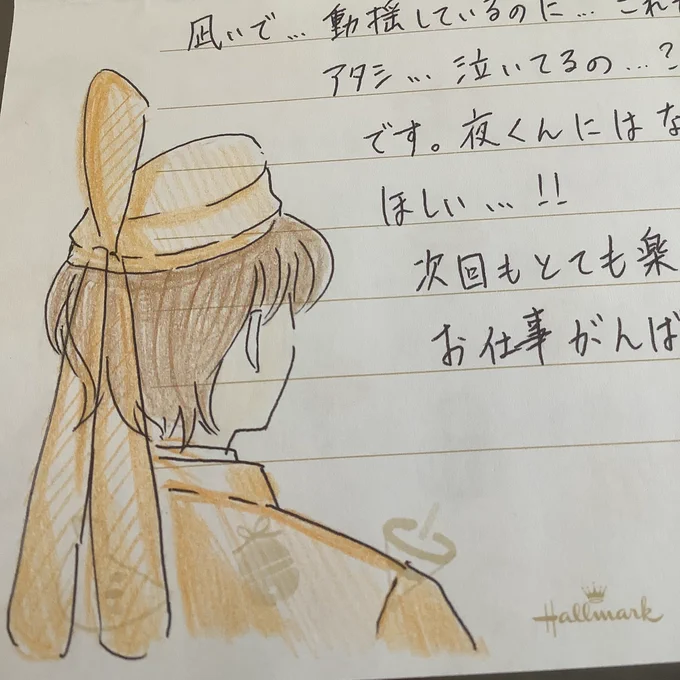 凪いで… 動揺しているのに… これ
アタシ… 泣いてるの…?
です。夜くんにはな
ほしい…!!
次回もとても楽
お仕事がんば
Hallmark